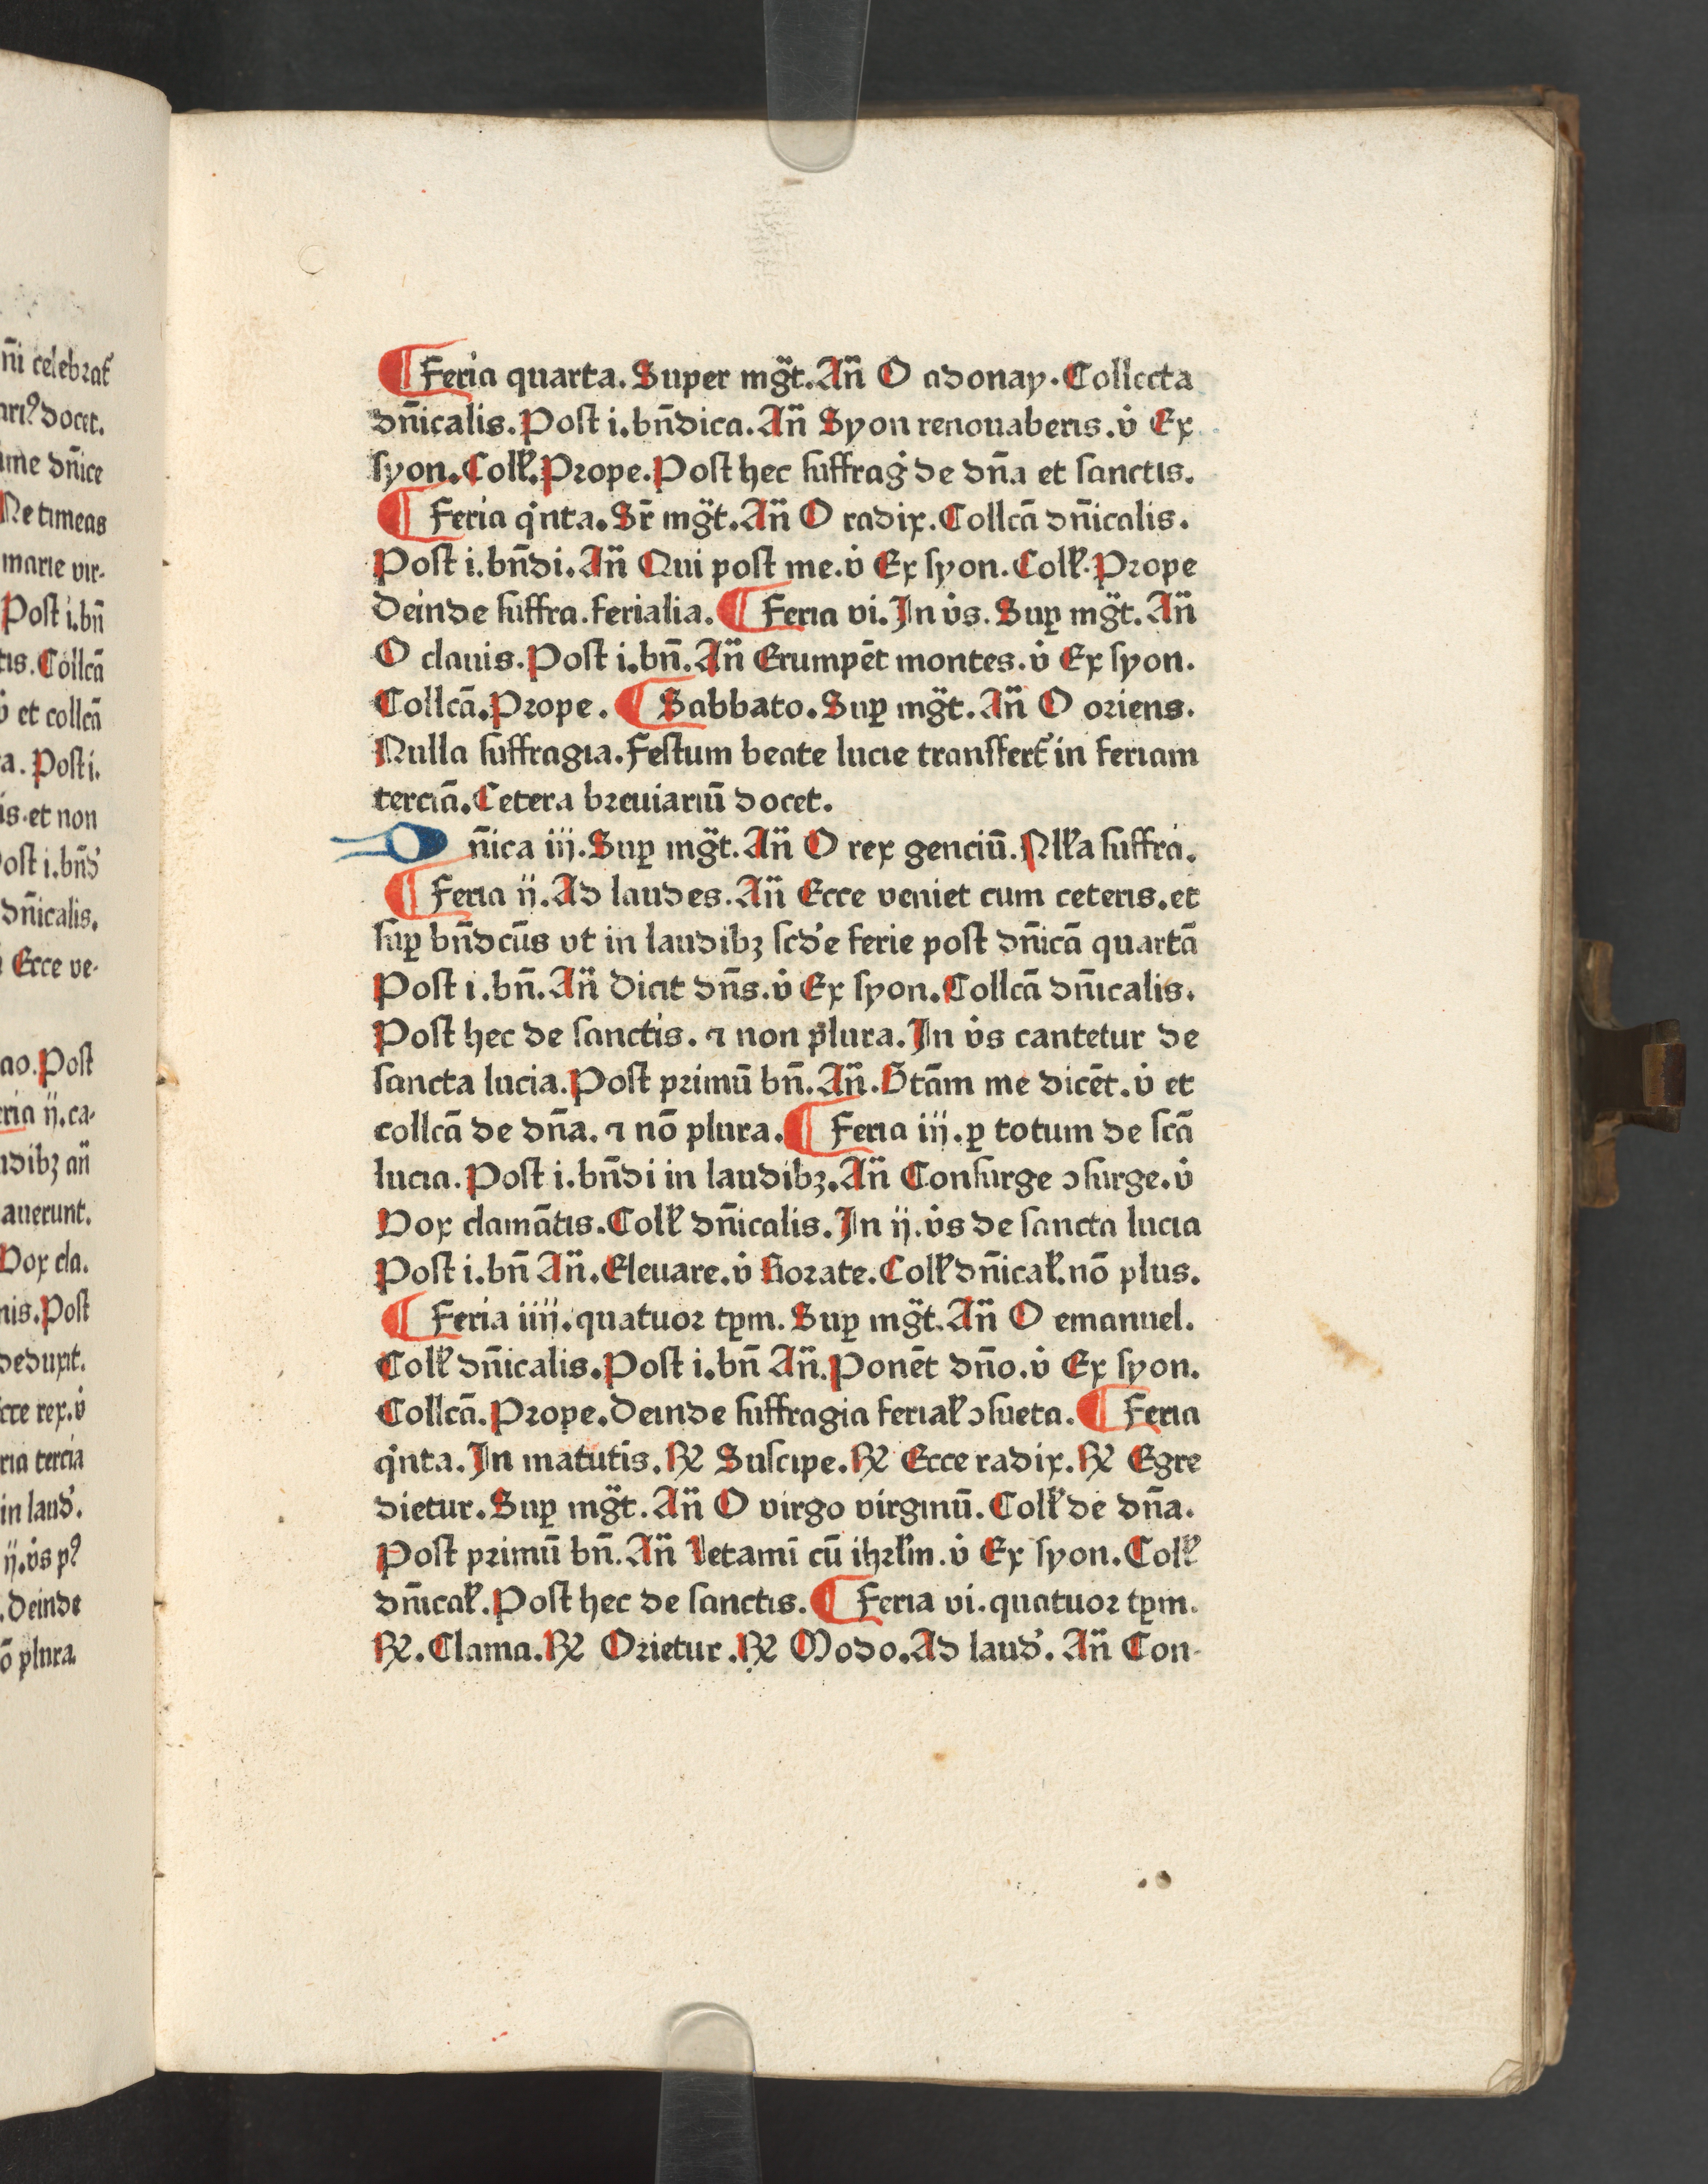 n̄i celebrat᷑
ariꝰ docet.
ime dn̄ice
Ne timeas
marie vir-
Post i.bn̄
tis. Collcā
v̇ et collcā
a. Post i.
is. et non
Post i. bn̄d
dn̄icalis.
Ecce ve-
ao. Post
eria ij. ca-
udibꝫ an̄
auerunt.
Vox cla.
nis. Post
deduxit.
cce rex. v̇
ria tercia
in laud.
ij. v̇s pꝰ
. deinde
ō plura.
¶ Feria quarta. Super mg̈t. An̄ O adonay. Collecta
dn̄icalis. Post i. bn̄dica. An̄ Syon renouaberis. v̇ Ex
syon. Coll̄. Prope. Post hec suffraġ de dn̄a et sanctis.
¶ Feria qͥnta. Sr̄ mg̈t. An̄ O radix. Collcā dn̄icalis.
Post i. bn̄di. An̄ Qui post me. v̇ Ex syon. Coll̄. Prope
Deinde suffra. ferialia. ¶ Feria vi. In v̇s. Suꝑ mg̈t. An̄
O clauis. Post i. bn̄. An̄ Erumpēt montes. v̇ Ex syon.
Collcā. Prope. ¶ Sabbato. Suꝑ mg̈t. An̄ O oriens.
Nulla suffragia. Festum beate lucie transfert᷑ in feriam
terciā. Cetera breuiariū docet.
Dn̄ica iij. Suꝑ mg̈t. An̄ O rex genciū. Nll̄a suffra.
¶ Feria ij. Ad laudes. An̄ Ecce veniet cum ceteris. et
suꝑ bn̄dcūs vt in laudibꝫ scd̄e ferie post dn̄icā quartā
Post i. bn̄. An̄ Dicit dn̄s. v̇ Ex syon. Collcā dn̄icalis.
Post hec de sanctis. ⁊ non plura. In v̇s cantetur de
sancta lucia. Post primū bn̄. An̄. Btām me dicēt. v̇ et
collcā de dn̄a. ⁊ nō plura. ¶ Feria iij. ꝑ totum de scā
lucia. Post i. bn̄di in laudibꝫ. An̄ Consurge ɔsurge. v̇
Vox clamātis. Coll̄ dn̄icalis. In ij. v̇s de sancta lucia
Post i. bn̄ An̄. Eleuare. v̇ Rorate. Coll̄ dn̄ical̄. nō plus.
¶ Feria iiij. quatuor tꝑm. Suꝑ mg̈t. An̄ O emanuel.
Coll̄ dn̄icalis. Post i. bn̄ An̄. Ponēt dn̄o. v̇ Ex syon.
Collcā. Prope. Deinde suffragia ferial̄ ɔsueta. ¶ Feria
qͥnta. In matutīs. ℞ Suscipe. ℞ Ecce radix. ℞ Egre
dietur. Suꝑ mg̈t. An̄ O virgo virginū. Coll̄ de dn̄a.
Post primū bn̄. An̄ Letamī cū ihrl̄m. v̇ Ex syon. Coll̄
dn̄ical̄. Post hec de sanctis. ¶ Feria vi. quatuor tꝑm.
℞. Clama. ℞ Orietur. ℞ Modo. Ad laud. An̄ Con-